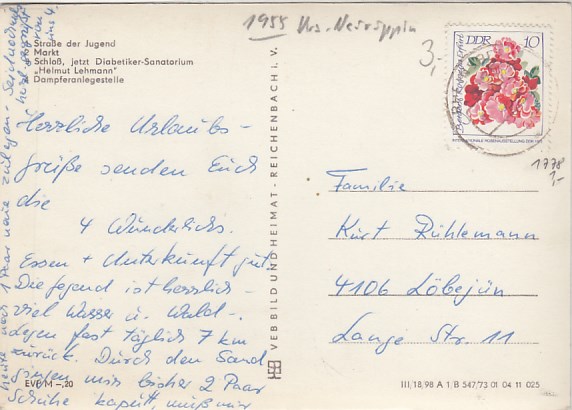 1955 Krs. Neuruppin
3,-
Straße der Jugend
Markt
Schloß, jetzt Diabetiker-Sanatorium
„Helmut Lehmann"
Dampferanlegestelle
DDR 10
INTERNATIONALE ROSENAUSSTELLUNG DER
1778
1,-
Herzliche Urlaubs-
grüße senden Euch
die
4 Wunderlichs.
Essen + Unterkunft gut.
Die Gegend ist herrlich -
viel Wasser u. Wald.-
Legen fast täglich 7 km
zurück. Durch den Sand
gingen mir bisher 2 Paar
Schuhe kaputt, muß mir
heute noch 1 Paar neue zulegen.
VEB BILD UND HEIMAT · REICHENBACH I. V.
Familie
Kurt Rühlemann
4106 Löbejün
Lange Str. 11
EVP M -,20
III/18/98 A 1 B 547/73 01 04 11 025